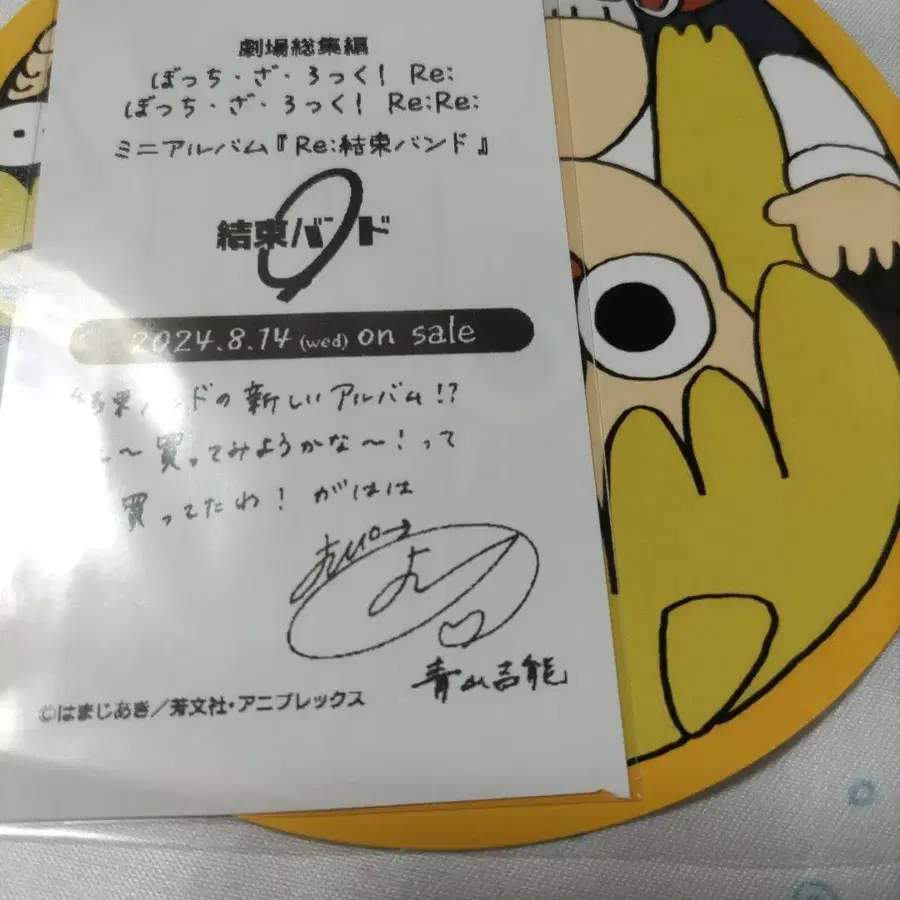 劇場総集編
ぼっち・ざ・ろっく! Re:
ぼっち・ざ・ろっく! Re:Re:
ミニアルバム『Re:結束バンド』
結束バンド
2024.8.14 (wed) on sale
結束バンドの新しいアルバム!?
〜買ってみようかな〜!って
買ってたわ! がはは
青山吉能
©はまじあき/芳文社・アニプレックス